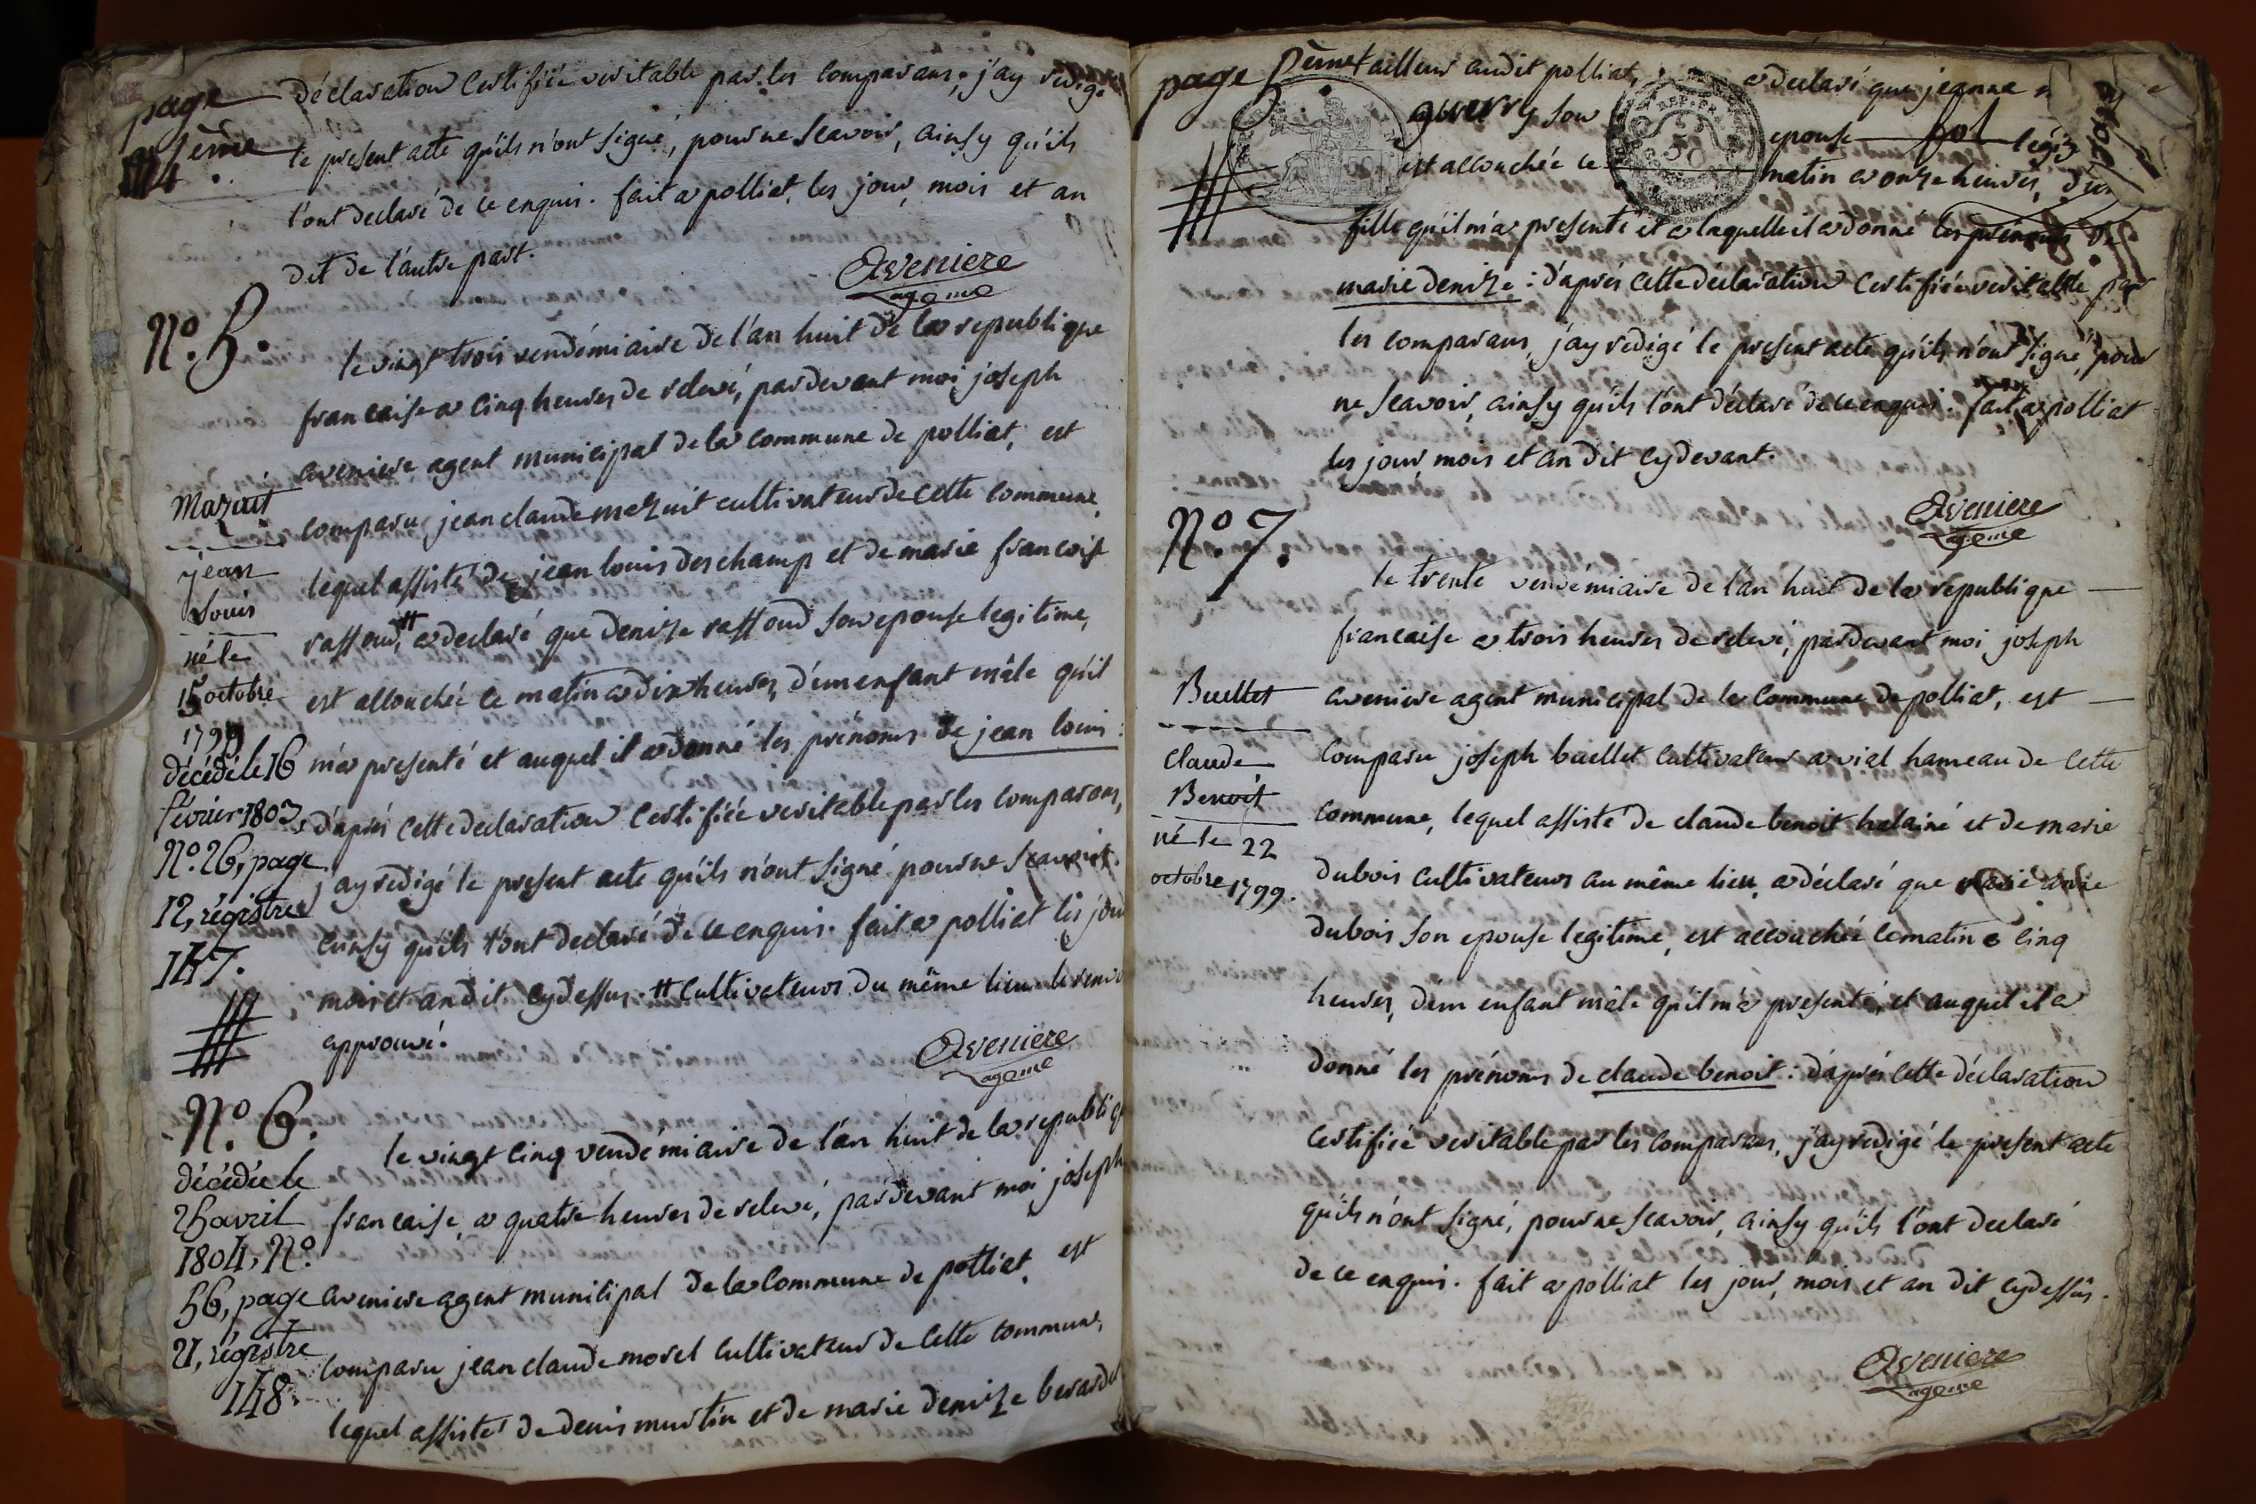 page
4ème
déclaration certifiée veritable par les comparans, j'ay redigé
le present acte qu'ils n'ont signé, pour ne scavoir, ainsy qu'ils
l'ont declaré de ce enquis. fait a polliat, les jour, mois et an
dit de l'autre part.
Aveniere
agent
N.º 5.
le vingt trois vendémiaire de l'an huit de la republique
francaise a cinq heures de relevé, pardevant moi joseph
aveniere agent municipal de la commune de polliat, est
Mazuit
comparu jean claude mazuit cultivateur de cette commune,
jean
Louis
lequel assisté de jean louis deschamp et de marie francoise
né le
raffoud, # a declaré que denize raffoud son epouse legitime,
15 octobre
1799
est accouchée ce matin a dix heures, d'un enfant mâle qu'il
décédé le 16
m'a presenté et auquel il a donné les prénoms de jean louis :
février 1803,
d'aprés cette declaration certifiée veritable par les comparans,
N.º 26, page
j'ay redigé le present acte qu'ils n'ont signé pour ne scavoir.
12, régistre
147.
ainsy qu'ils l'ont declaré de ce enquis. fait a polliat les jour
mois et an dit cydessus. # cultivateurs du même lieu le renvoi
approuvé.
Aveniere
agent
N.º 6.
le vingt cinq vendémiaire de l'an huit de la republique
décédée le
25 avril
francaise, a quatre heures de relevé, pardevant moi joseph
1804, N.º
56, page
aveniere agent municipal de la commune de polliat, est
21, régistre
comparu jean claude morel cultivateur de cette commune,
148.
lequel assisté de denis murtin et de marie denize berard
page 5ème
tailleur audit polliat, a declaré que jeanne
guerry son epouse legit
est accouchée ce matin a onze heures, d'une
fille qu'il m'a presenté et a laquelle il a donné les prénoms de
marie denize : d'aprés cette déclaration certifiée veritable par
les comparans, j'ay redigé le present acte qu'ils n'ont signé, pour
ne scavoir, ainsy qu'ils l'ont déclaré de ce enquis. fait a polliat
les jour, mois et an dit cydevant.
Aveniere
agent
N.º 7.
le trente vendémiaire de l'an huit de la republique
francaise a trois heures de relevé, pardevant moi joseph
Buellet
aveniere agent municipal de la commune de polliat, est
Claude
comparu joseph buellet cultivateur a vial hameau de cette
Benoit
commune, lequel assisté de claude benoit halainé et de marie
né le 22
octobre 1799.
dubois cultivateurs au même lieu, a déclaré que marie
dubois son epouse legitime, est accouchée ce matin a cinq
heures, d'un enfant mâle qu'il m'a presenté, et auquel il a
donné les prénoms de claude benoit : d'aprés cette déclaration
certifiée veritable par les comparans, j'ay redigé le present acte
qu'ils n'ont signé, pour ne scavoir, ainsy qu'ils l'ont declaré
de ce enquis. fait a polliat les jour, mois et an dit cydessus.
Aveniere
agent